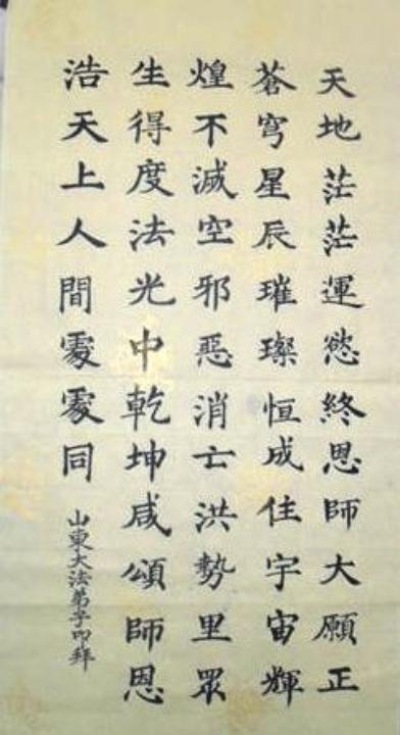 天地茫茫運慾終恩師大願正
蒼穹星辰璀璨恒成住宇宙輝
煌不滅空邪惡消亡洪勢里眾
生得度法光中乾坤咸頌師恩
浩天上人間處處同
山東大法弟子叩拜